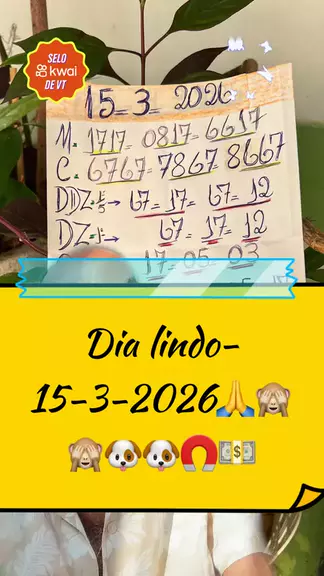 SELO
kwai
DE VT
15=3=2026
M. 1717= 0817= 6617
C. 6767= 7867 8667
DDZ 1/5→ 67=17= 67=12
DZ=1º→ 67= 17= 12
17=05= 03
Dia lindo-
15-3-2026🙏🙈
🙈🐶🐶🧲💵